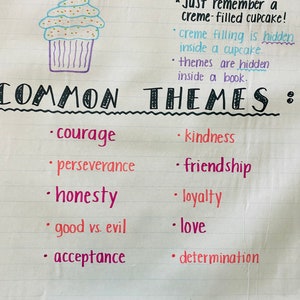 * Just remember a
creme-filled cupcake!
• Creme filling is hidden
inside a cupcake.
• themes are hidden
inside a book.
COMMON THEMES:
• courage
• perseverance
• honesty
• good vs. evil
• acceptance
• kindness
• friendship
• loyalty
• love
• determination